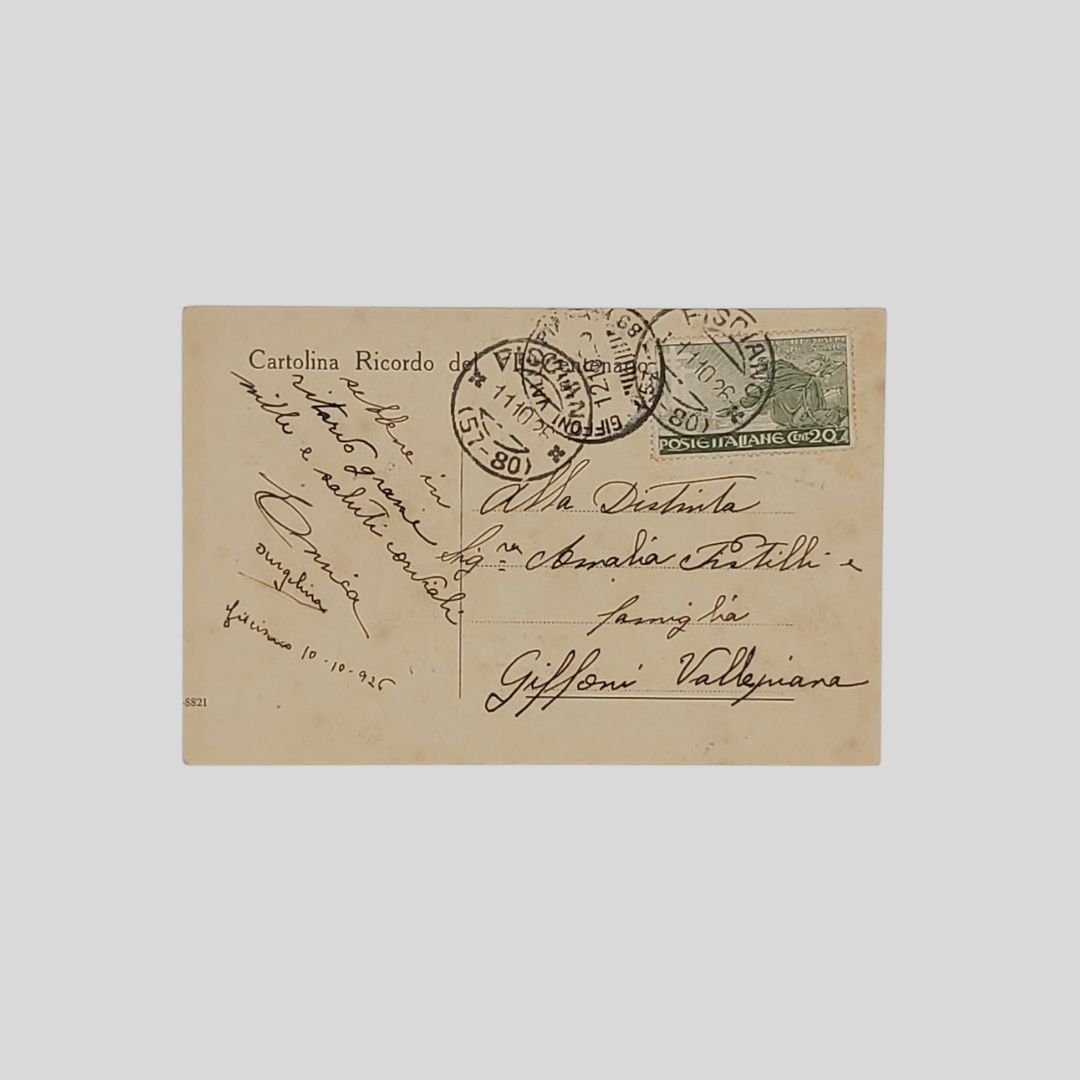 Cartolina Ricordo del VII Centenario
sebbene in
ritardo grazie
mille e saluti cordiali
Ersica
Fisciano 10-10-926
-8821
FISCIANO
11 10 26
(08-LS)
FISCIANO
11 10 26
(08-LS)
GIFFONI VALLE PIANA
12 10
POSTE ITALIANE CENT. 20
Alla Distinta
Sig.ra Amalia Fistilli e
famiglia
Giffoni Vallepiana